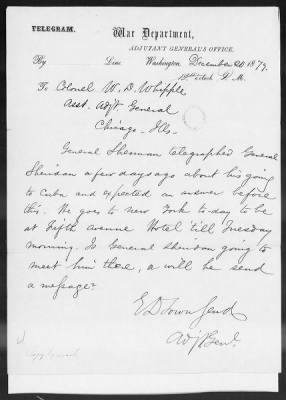 TELEGRAM.
War Department,
ADJUTANT GENERAL'S OFFICE.
By Line Washington December 20 1879.
12 o'clock P. M.
To Colonel W. D. Whipple
Asst. Adjt General
Chicago. Ills.
General Sherman telegraphed General
Sheridan a few days ago about his going
to Cuba and expected an answer before
this. He goes to New York to day to be
at Fifth Avenue Hotel 'till Tuesday
morning. Is General Sheridan going to
meet him there, or will he send
a message?
E D Townsend
Adjt Genl.